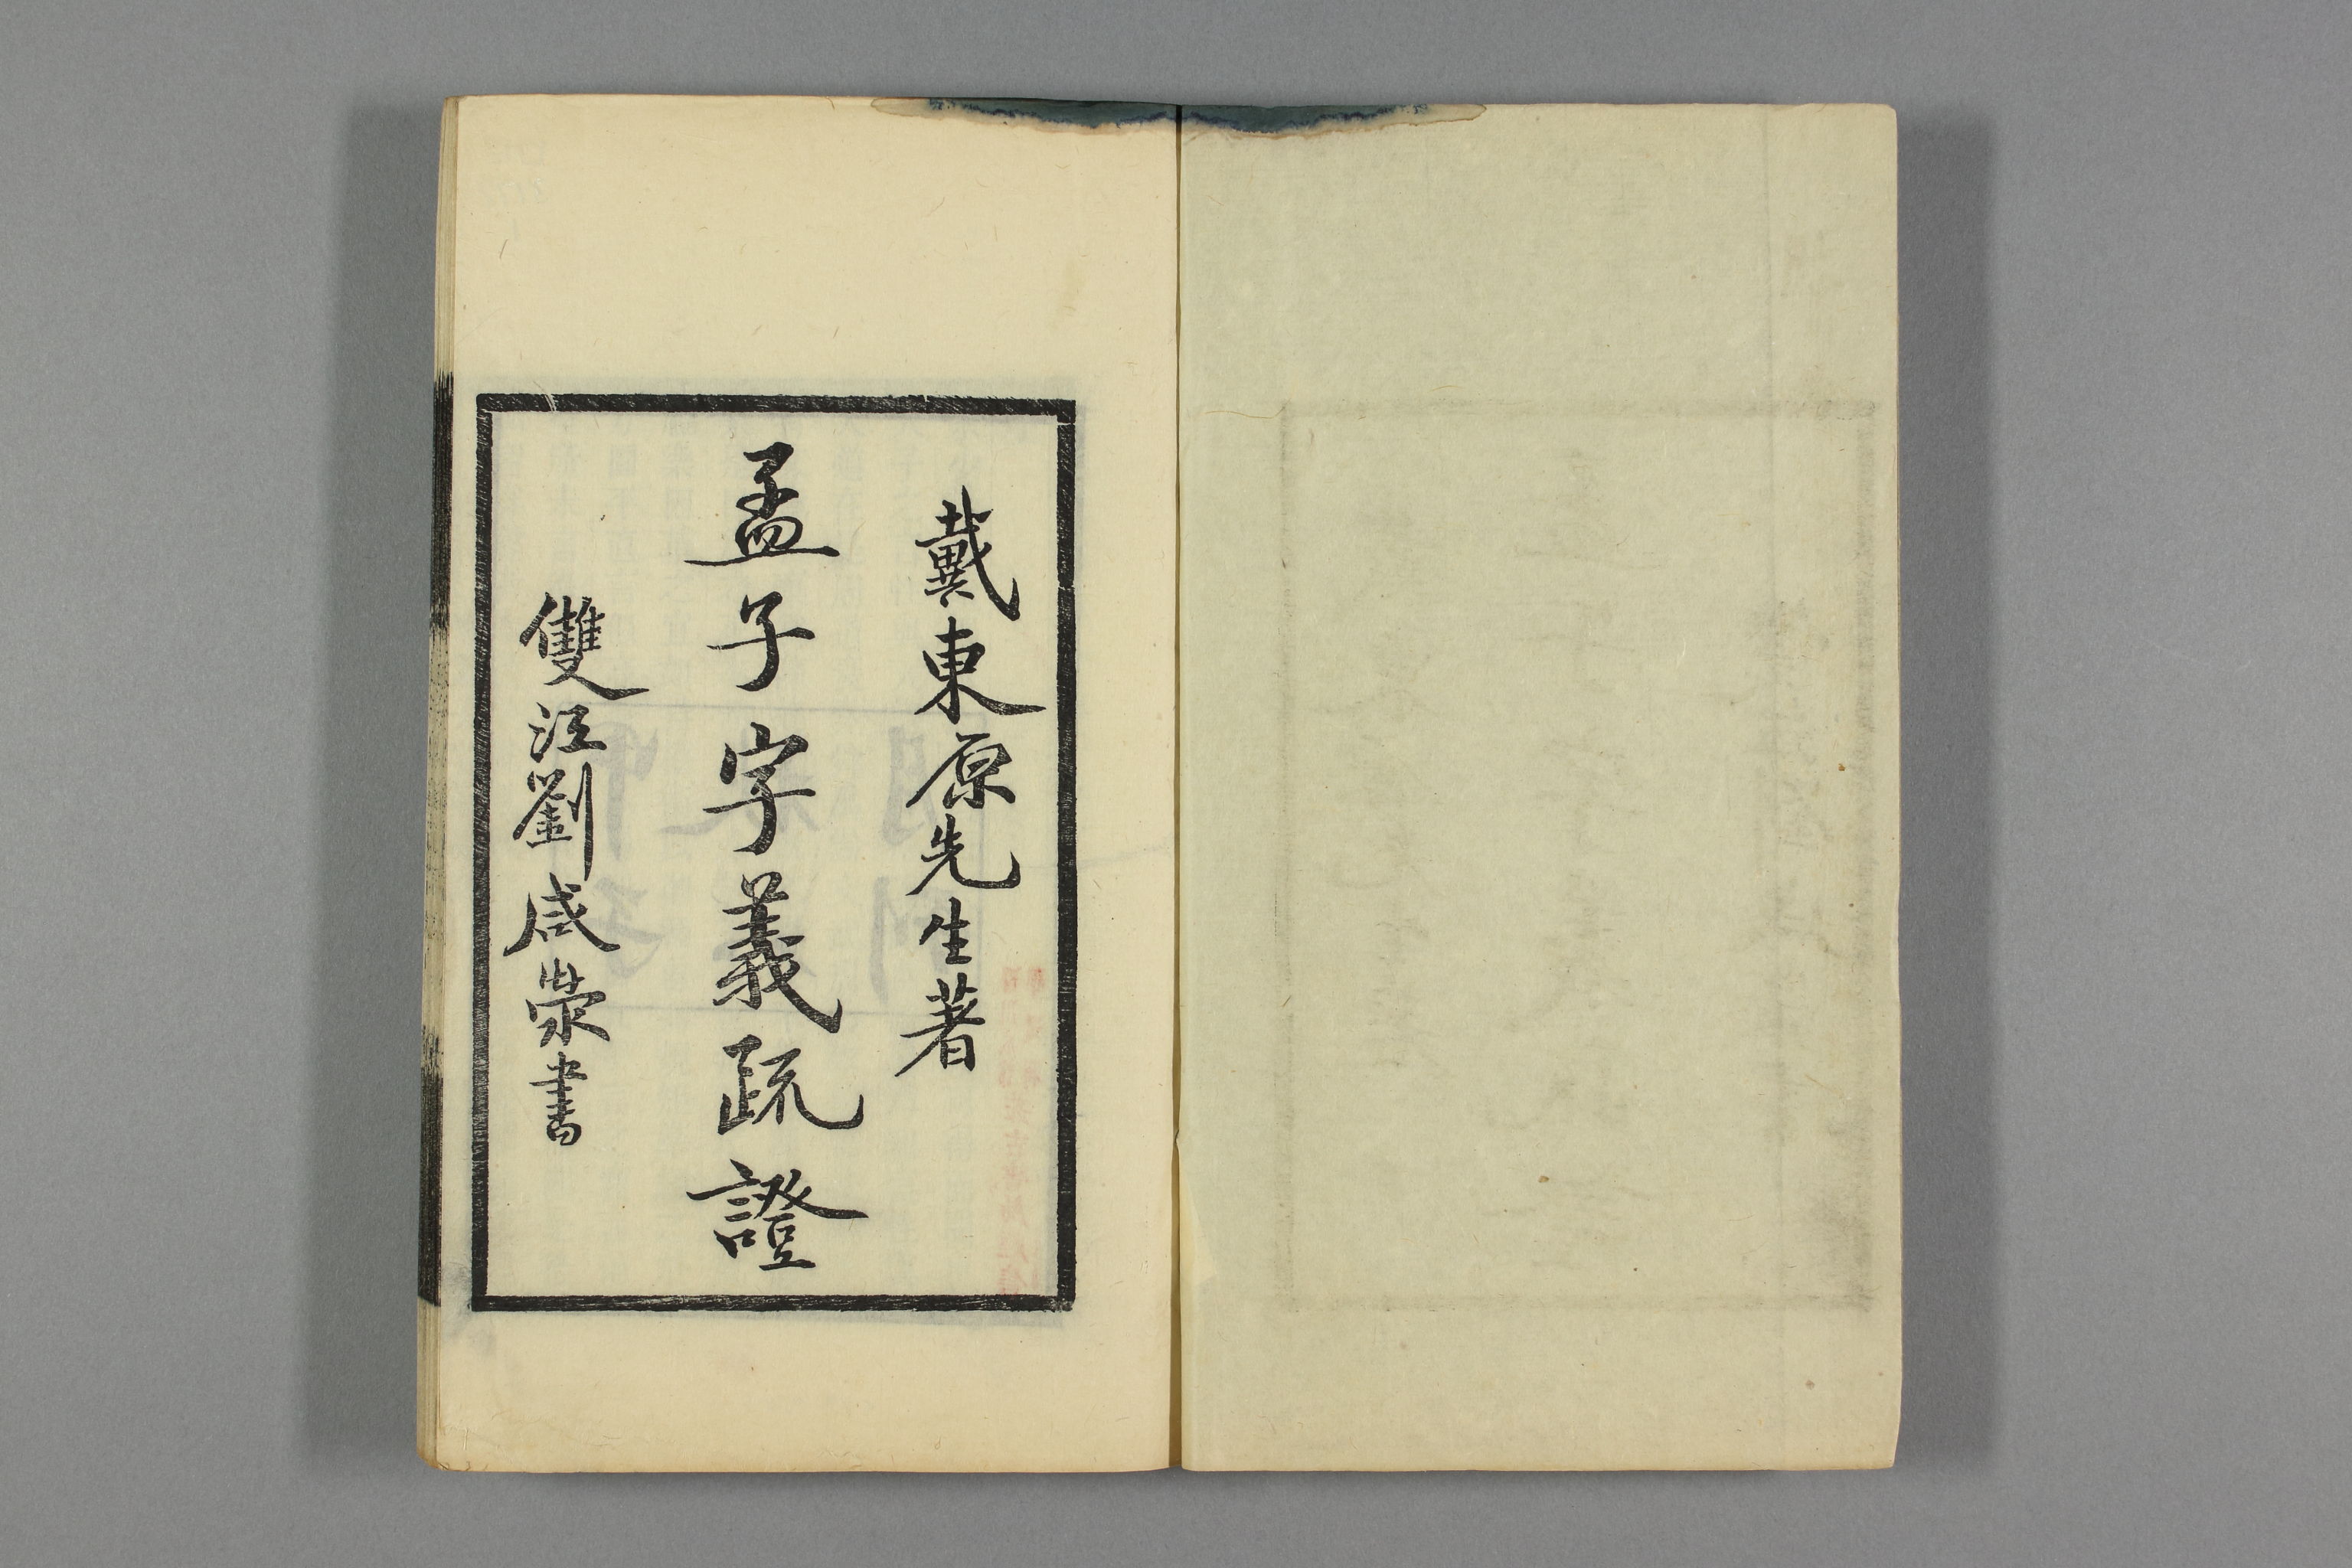 戴東原先生著
孟子字義疏證
雙江劉咸滎書